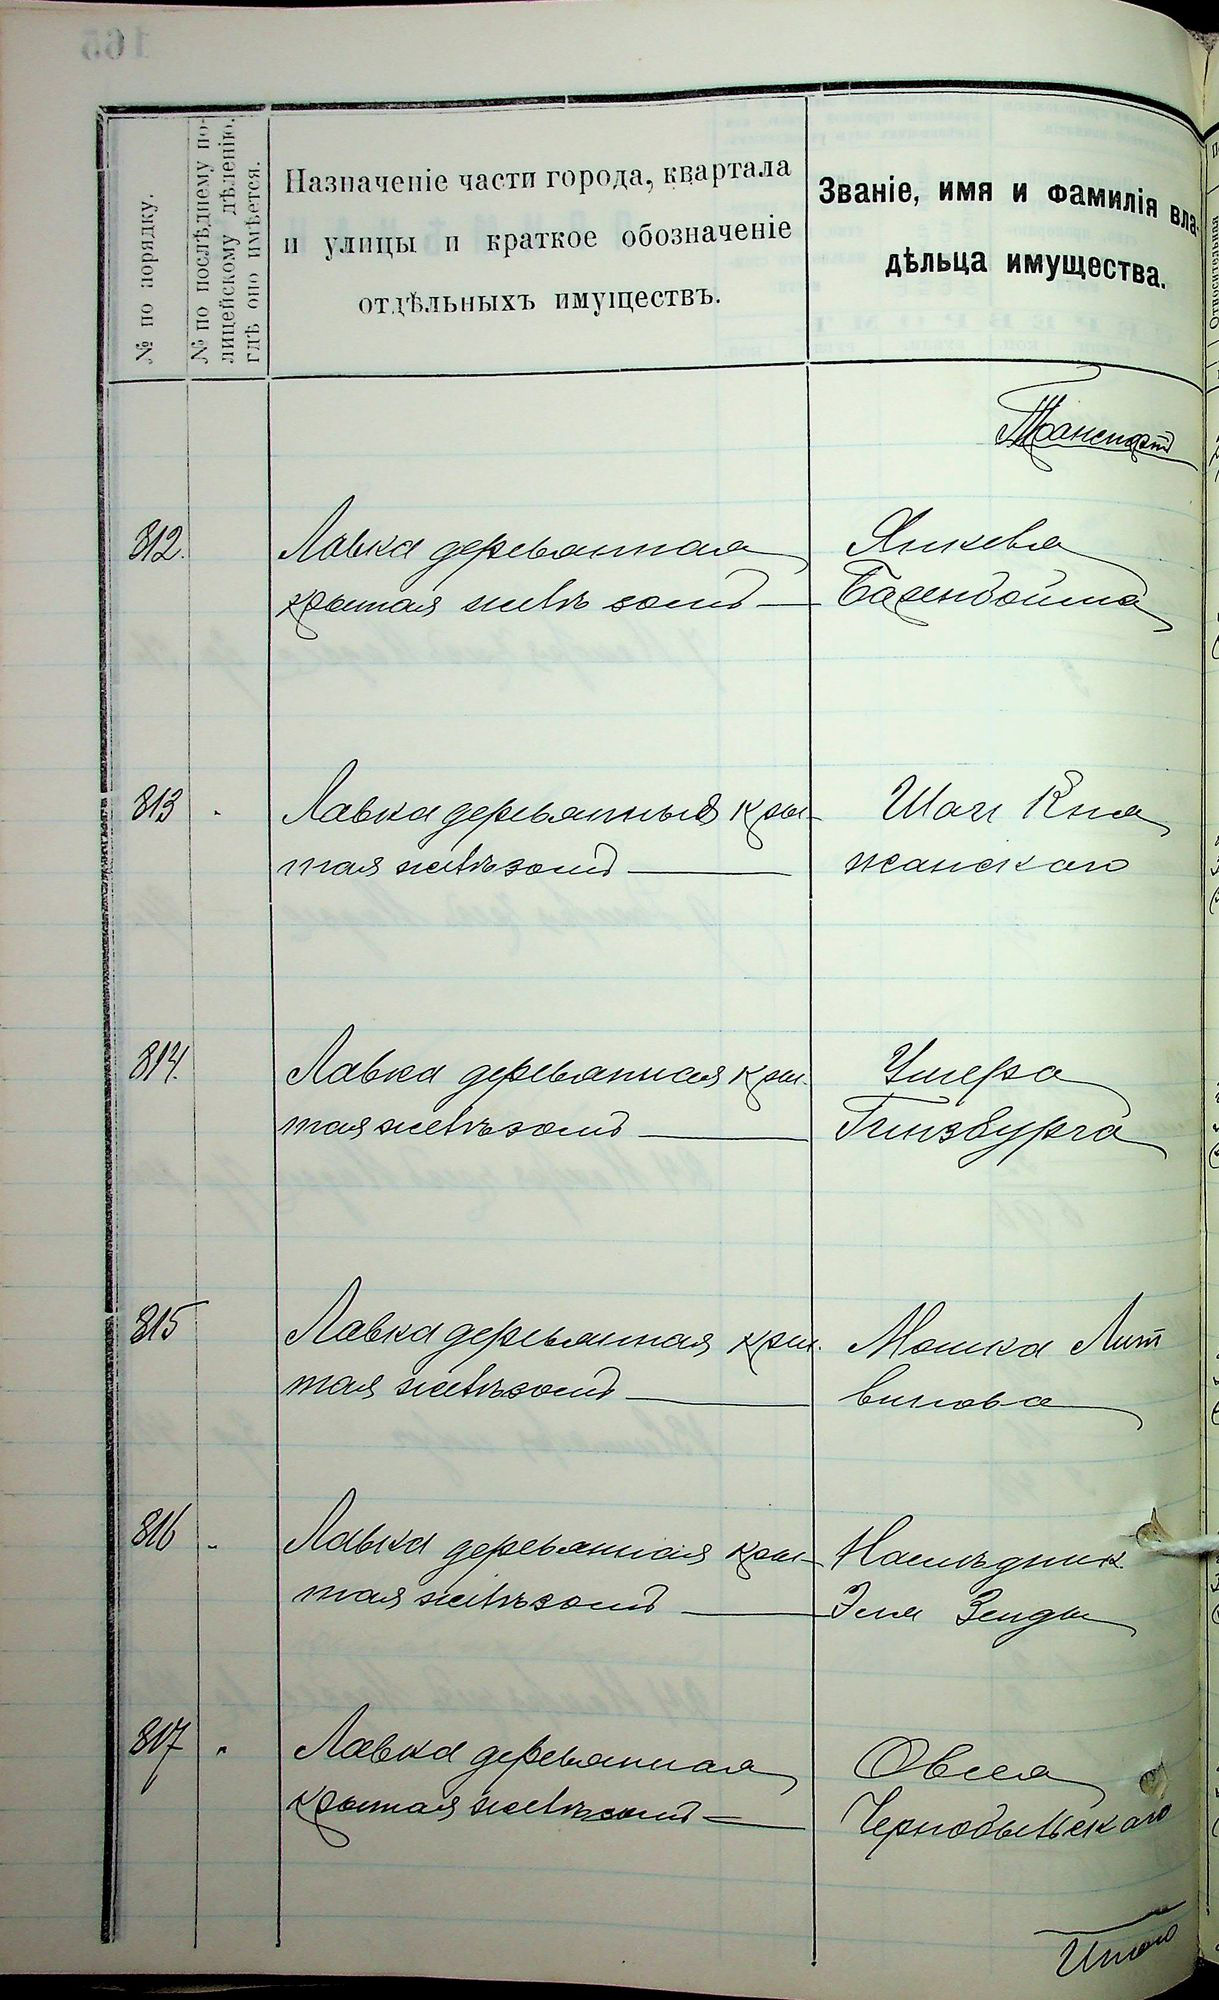 165
№ по порядку.
№ по послѣднему по-
лицейскому дѣленію,
гдѣ оно имѣется.
Назначеніе части города, квартала
и улицы и краткое обозначеніе
отдѣльныхъ имуществъ.
Званіе, имя и фамилія вла-
дѣльца имущества.
Транспортъ
812.
Лавка деревянная
крытая желѣзомъ
Янкева
813
Лавка деревянная кры-
тая желѣзомъ
Шаи Кня
жанскаго
814.
Лавка деревянная кры-
тая желѣзомъ
Ушера
Гинзбурга
815
Лавка деревянная кры-
тая желѣзомъ
Мошка Лит
винова
816
Лавка деревянная кры-
тая желѣзомъ
Наслѣдник
Эля Зенды
817
Лавка деревянная
крытая желѣзомъ
Овсея
Чернобыльскаго
Итого